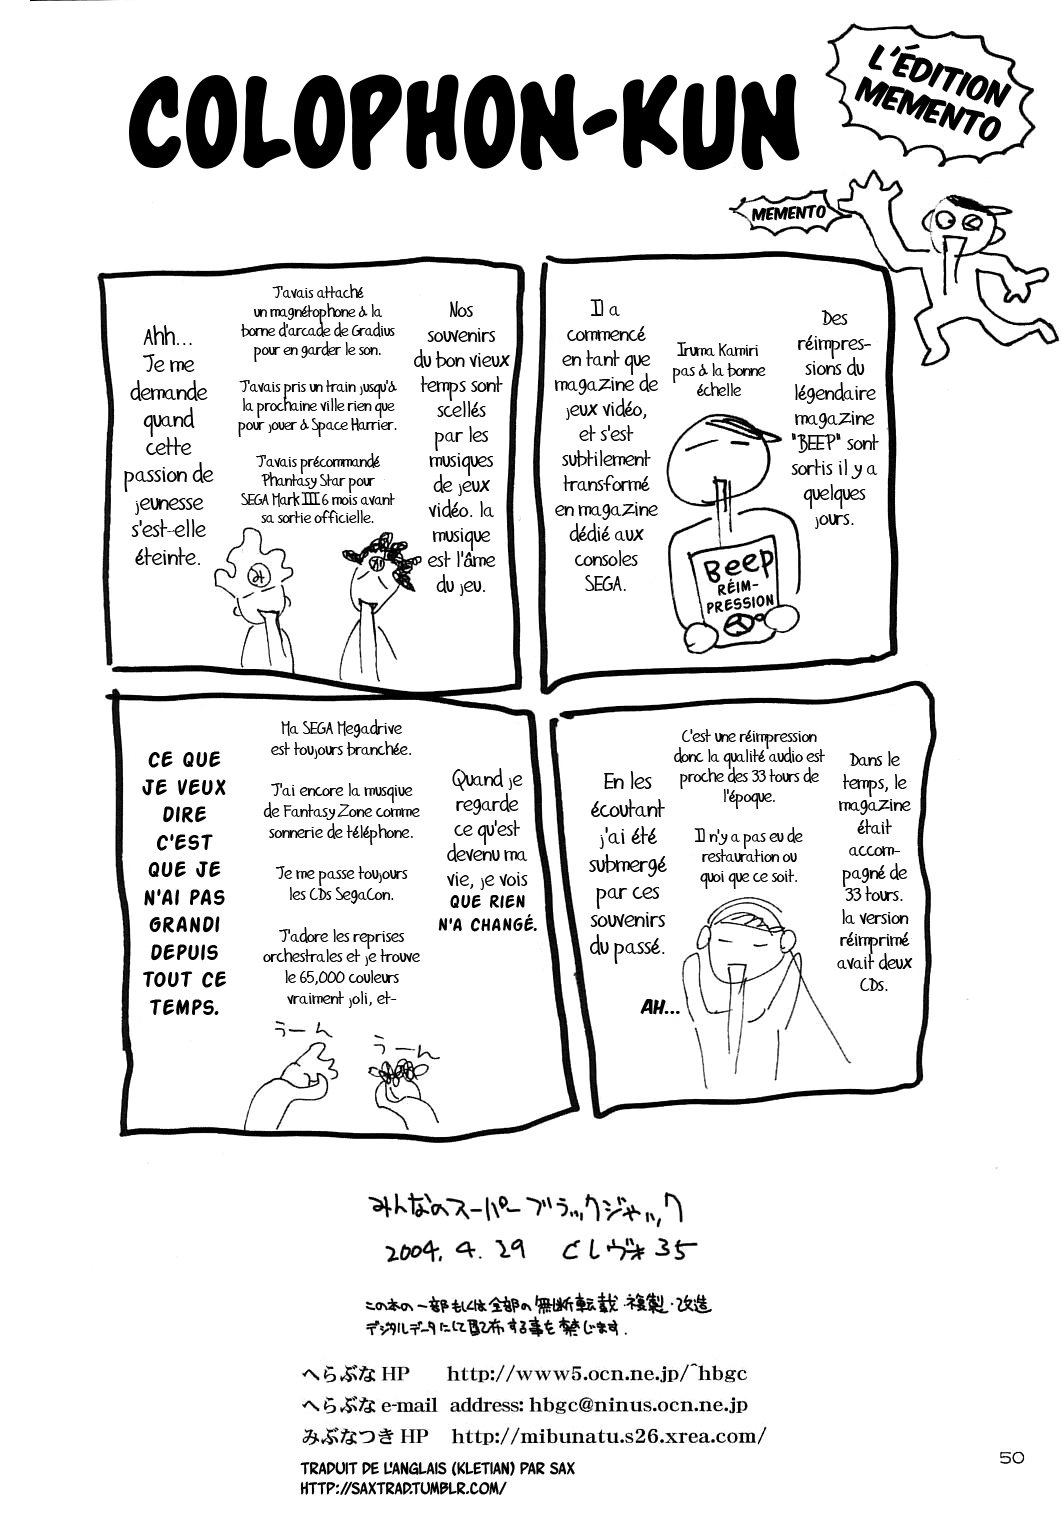 COLOPHON-KUN
L'ÉDITION
MEMENTO
MEMENTO
Des
réimpres-
sions du
légendaire
magazine
"BEEP" sont
sortis il y a
quelques
jours.
Iruma Kamiri
pas à la bonne
échelle
Beep
RÉIM-
PRESSION
Il a
commencé
en tant que
magazine de
jeux vidéo,
et s'est
subtilement
transformé
en magazine
dédié aux
consoles
SEGA.
Nos
souvenirs
du bon vieux
temps sont
scellés
par les
musiques
de jeux
vidéo. la
musique
est l'âme
du jeu.
J'avais attaché
un magnétophone à la
borne d'arcade de Gradius
pour en garder le son.
J'avais pris un train jusqu'à
la prochaine ville rien que
pour jouer à Space Harrier.
J'avais précommandé
Phantasy Star pour
SEGA Mark III 6 mois avant
sa sortie officielle.
Ahh...
Je me
demande
quand
cette
passion de
jeunesse
s'est-elle
éteinte.
Dans le
temps, le
magazine
était
accom-
pagné de
33 tours.
la version
réimprimé
avait deux
CDs.
C'est une réimpression
donc la qualité audio est
proche des 33 tours de
l'époque.
Il n'y a pas eu de
restauration ou
quoi que ce soit.
En les
écoutant
j'ai été
submergé
par ces
souvenirs
du passé.
AH...
Quand je
regarde
ce qu'est
devenu ma
vie, je vois
QUE RIEN
N'A CHANGÉ.
Ma SEGA Megadrive
est toujours branchée.
J'ai encore la musqiue
de Fantasy Zone comme
sonnerie de téléphone.
Je me passe toujours
les CDs SegaCon.
J'adore les reprises
orchestrales et je trouve
le 65,000 couleurs
vraiment joli, et-
うーん
うーん
CE QUE
JE VEUX
DIRE
C'EST
QUE JE
N'AI PAS
GRANDI
DEPUIS
TOUT CE
TEMPS.
みんなのスーパーブラックジャック
2004.4.29 くしヴォ35
この本の一部もしくは全部の無断転載・複製・改造
デジタルデータにして配布する事を禁じます.
へらぶなHP http://www5.ocn.ne.jp/~hbgc
へらぶな e-mail address: hbgc@ninus.ocn.ne.jp
みぶなつきHP http://mibunatu.s26.xrea.com/
TRADUIT DE L'ANGLAIS (KLETIAN) PAR SAX
HTTP://SAXTRAD.TUMBLR.COM/
50